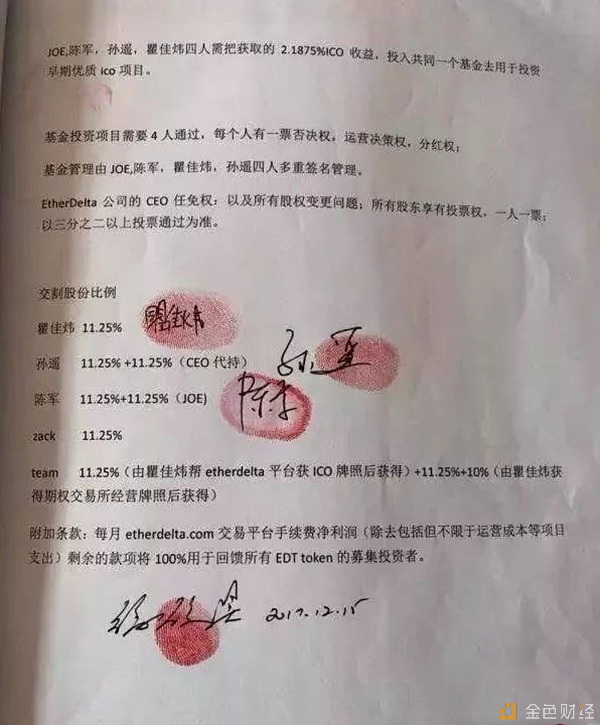 JOE,陈军，孙遥，瞿佳炜四人需把获取的 2.1875%ICO 收益，投入共同一个基金去用于投资
早期优质 ico 项目。
基金投资项目需要 4 人通过，每个人有一票否决权，运营决策权，分红权；
基金管理由 JOE,陈军，瞿佳炜，孙遥四人多重签名管理。
EtherDelta 公司的 CEO 任免权：以及所有股权变更问题；所有股东享有投票权，一人一票；
以三分之二以上投票通过为准。
交割股份比例
瞿佳炜 11.25%
瞿佳炜
孙遥 11.25% +11.25%（CEO 代持）
孙遥
陈军 11.25%+11.25%（JOE)
陈军
zack 11.25%
team 11.25%（由瞿佳炜帮 etherdelta 平台获 ICO 牌照后获得）+11.25%+10%（由瞿佳炜获
得期权交易所经营牌照后获得）
附加条款：每月 etherdelta.com 交易平台手续费净利润（除去包括但不限于运营成本等项目
支出）剩余的款项将 100%用于回馈所有 EDT token 的募集投资者。
2017.12.15
金色财经